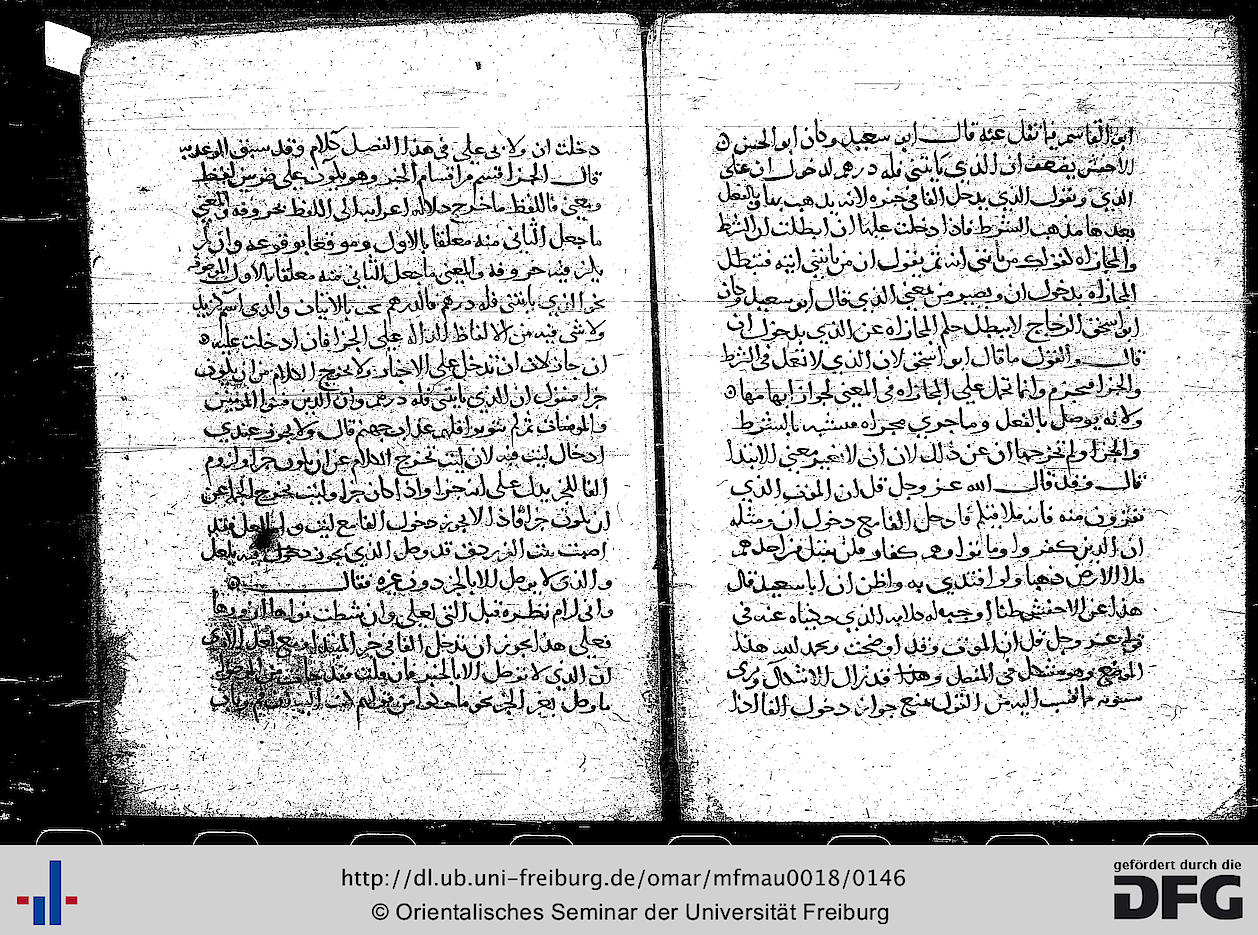 ابو القاسم فيما نقل عنه قال ابن سعيد وكان ابو الحسن
الاخفش ان الذي ياتيني فله درهم لدخول ان على
الذي ويقول الذي يدخل الفا في خبره لانه يذهب بها
بعدها مذهب الشرط فاذا دخلت عليها ان ابطلت ان الشرط
والمجازاه كقولك من ياتني اته ثم يقول ان من ياتيني اتيه فتبطل
المجازاه بدخول ان ويصير من بمعنى الذي قال ابو سعيد وكان
ابو اسحق الزجاج لا يبطل حكم المجازاه عن الذي بدخول ان
قال والقول ما قال ابو اسحق لان الذي لا تعمل في الشرط
والجزا فيجزم وانما تحمل على المجازاه في المعنى لجواز ابهامها
ولانه يوصل بالفعل وما جرى مجراه فشبه بالشرط
والجزا ولم تخرجها ان عن ذلك لان ان لا تغير معنى الابتدا
قال وقد قال الله عز وجل قل ان الموت الذي
تفرون منه فانه ملاقيكم فادخل الفا مع دخول ان ومثله
ان الذين كفروا وماتوا وهم كفار فلن يقبل من احدهم
ملا الارض ذهبا ولو افتدى به واظن ان ابا سعيد قال
هذا عن الاخفش الذي حكيناه عنه في
قوله عز وجل قل ان الموت وقد اوضحت بحمد الله هذا
الموضع وهو مشكل في المفصل وهذا قد زال الاشكال
سيبويه من القول منع جواز دخول الفا اذا
دخلت ان ولابي علي في هذا الفصل كلام وقد سبق الوعد به
قال الجزا قسم من اقسام الخبر وهو يكون على ضربين لفظ
ومعنى فاللفظ ما خرج دلاله اعرابه الى اللفظ بحروفه والمعنى
ما جعل الثاني منه معلقا بالاول وموقعا بوقوعه وان لم
يكن فيه حروفه والمعنى ما جعل الثاني منه معلقا بالاول
نحو الذي ياتيني فله درهم فالدرهم يجب بالاتيان والذي اسم
ولا شي فيه من الالفاظ الداله على الجزا فان ادخلت عليه
ان جاز لان ان تدخل على الاخبار ولا يخرج الكلام من ان يكون
جزا فتقول ان الذي ياتيني فله درهم وان الذين فتنوا المومنين
والمومنات ثم لم يتوبوا فلهم عذاب جهنم قال ولا يجوز عندي
ادخال ليت فيه لان ليت تخرج الكلام عن ان يكون جزا ولزوم
الفا للخبر يدل على انه جزا واذا كان جزا وليت يخرج الكلام عن
ان يكون جزا فاذا لا يجوز دخول الفا مع ليت ولعل فقد
اصبت بيت الفرزدق قد وصل الذي يجوز دخول فيه بلعل
والذي لا يوصل الا بالخبر دون غيره فقال
واني لرام نظره قبل التي لعلي وان شطت نواها ازورها
فعلى هذا يجوز ان تدخل الفا في خبر المبتدا مع لعل
ان الذي لا توصل الا بالخبر فان قلت فقد
ما وصل بغير الخبر نحو ما حكوا من قولهم
http://dl.ub.uni-freiburg.de/omar/mfmau0018/0146
© Orientalisches Seminar der Universität Freiburg
gefördert durch die
DFG